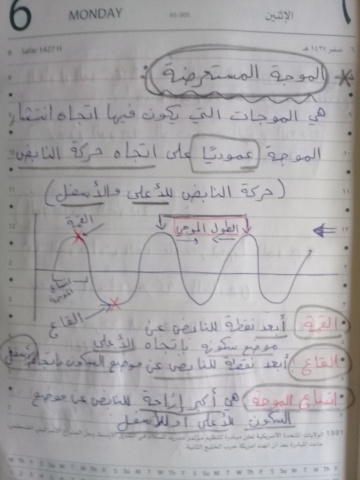 6
MONDAY
95-305
الإثنين
Safar 1427 H
صفر ١٤٢٧ هـ
* الموجة المستعرضة
هي الموجات التي يكون فيها اتجاه انتشار
الموجة عموديًا على اتجاه حركة النابض
(حركة النابض للأعلى والأسفل)
القمة
الطول الموجي
القاع
القمة أبعد نقطة للنابض عن
موضع سكونه باتجاه الأعلى
القاع أبعد نقطة للنابض عن موضع السكون باتجاه أسفل
اتساع الموجة هي أكبر إزاحة للنابض عن موضع
السكون للأعلى أو للأسفل
1991